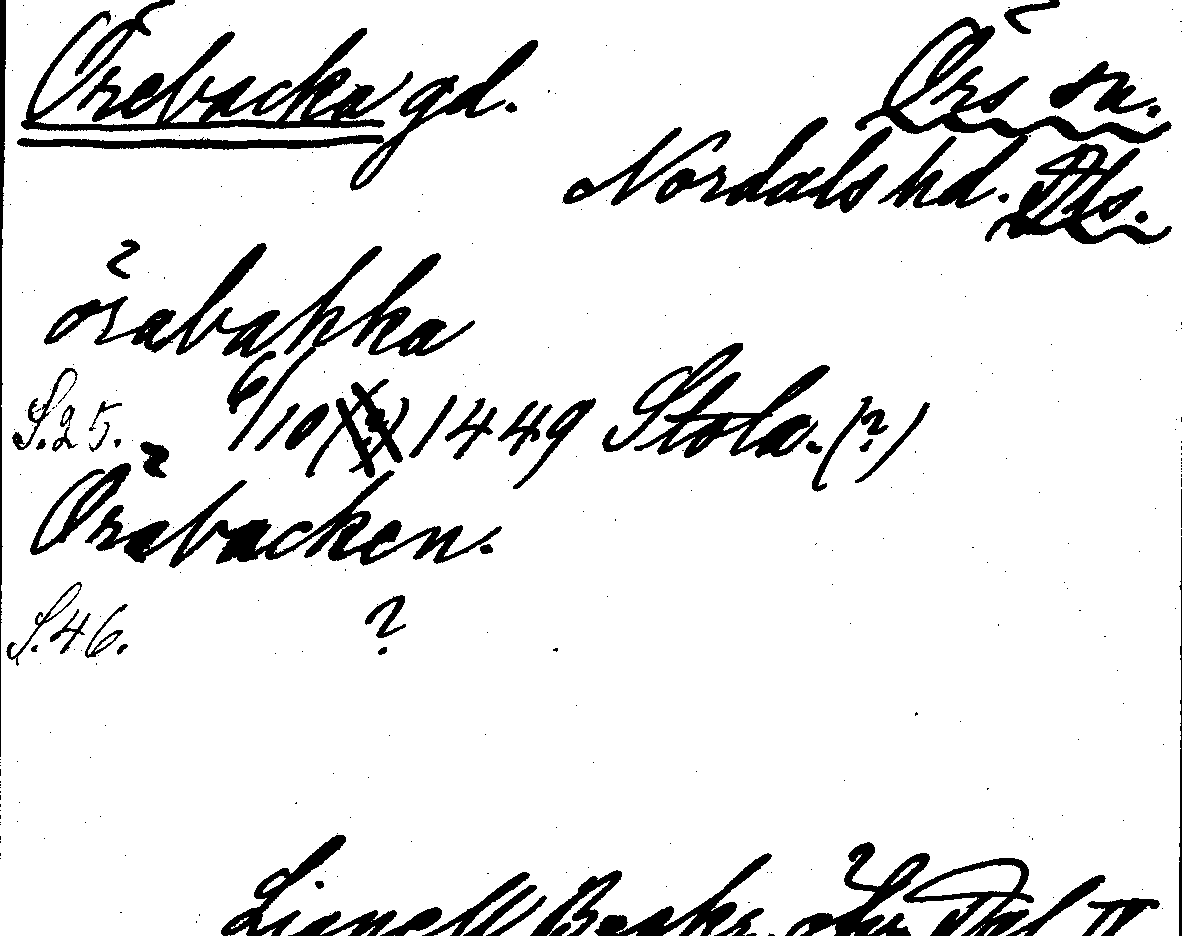 Örebacka gd. Örs sn.
Nordals hd. Dls.
örabakka
S.25. 6/10 1449 Stola. (?)
Örabacken.
S.46. ?
Lignell Beskr. öfv. Dal II